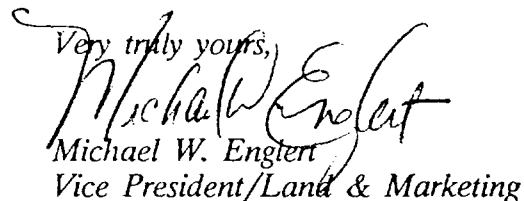 Very truly yours,
Michael W. Englert
Michael W. Englert
Vice President/Land & Marketing